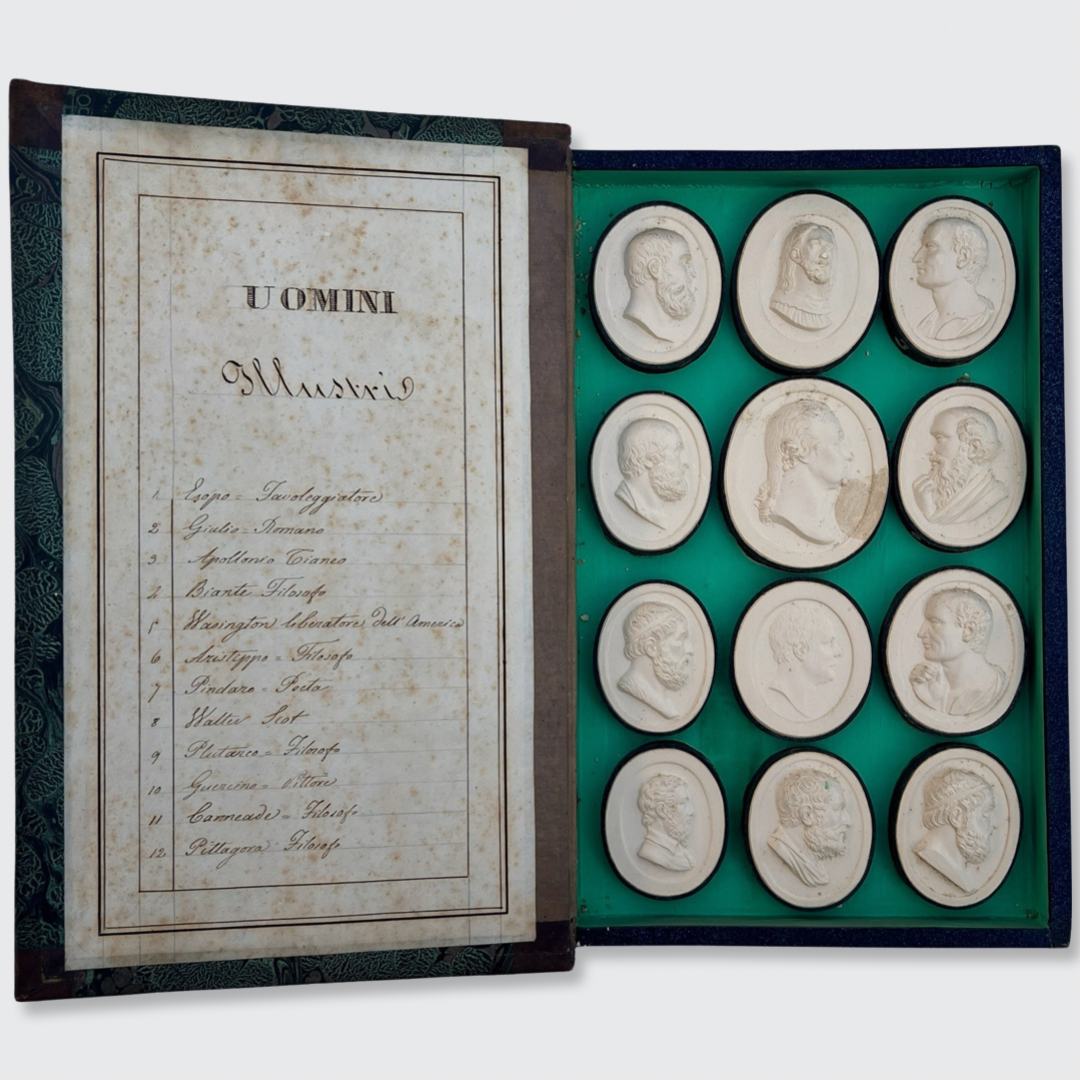 UOMINI
Illustri
1. Esopo = Favoleggiatore
2 Giulio = Romano
3 Apollonio Tianeo
4 Biante Filosofo
5 Wasington leberatore dell'America
6 Aristippo = Filosofo
7 Pindaro = Poeta
8 Walter Scot
9 Plutarco = Filosofo
10 Guercino = Pittore
11 Carneade = Filosofo
12 Pittagora = Filosofo